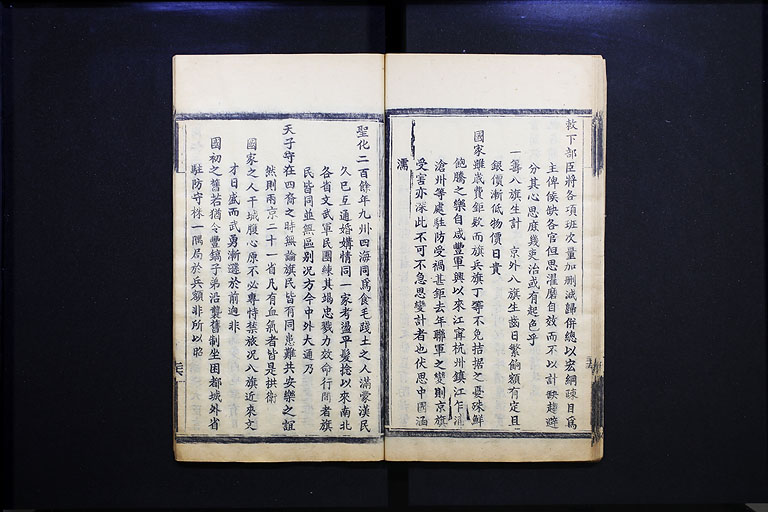 敕下部臣將各項班次量加刪減歸併總以宏綱疎目爲
主俾候缺各官但思濯磨自效而不以計缺趨避
分其心思庶幾吏治或有起色乎
一籌八旗生計　京外八旗生齒日繁餉額有定且
銀價漸低物價日貴
國家雖歲費鉅欵而旗兵旗丁等不免拮据之憂殊鮮
飽騰之樂自咸豐軍興以來江甯杭州鎮江乍浦
滄州等處駐防受禍甚鉅去年聯軍之變則京旗
受害亦深此不可不急思變計者也伏思中國涵
濡
聖化二百餘年九州四海同爲食毛踐土之人滿蒙漢民
久已互通婚媾情同一家者盪平髮捻以來南北
各省文武軍民團練其場忠戮力效命行間者旗
民皆同並無區别况方今中外大通乃
天子守在四裔之時無論旗民皆有同患難共安樂之誼
然則兩京二十一省凡有血氣者皆是拱衛
國家之人干城腹心原不必專恃禁旅况八旗近來文
才日盛而武勇漸遜於前迥非
國初之舊若猶令豐鎬子弟沿襲舊制坐困都城外省
駐防守株一隅局於兵額非所以昭